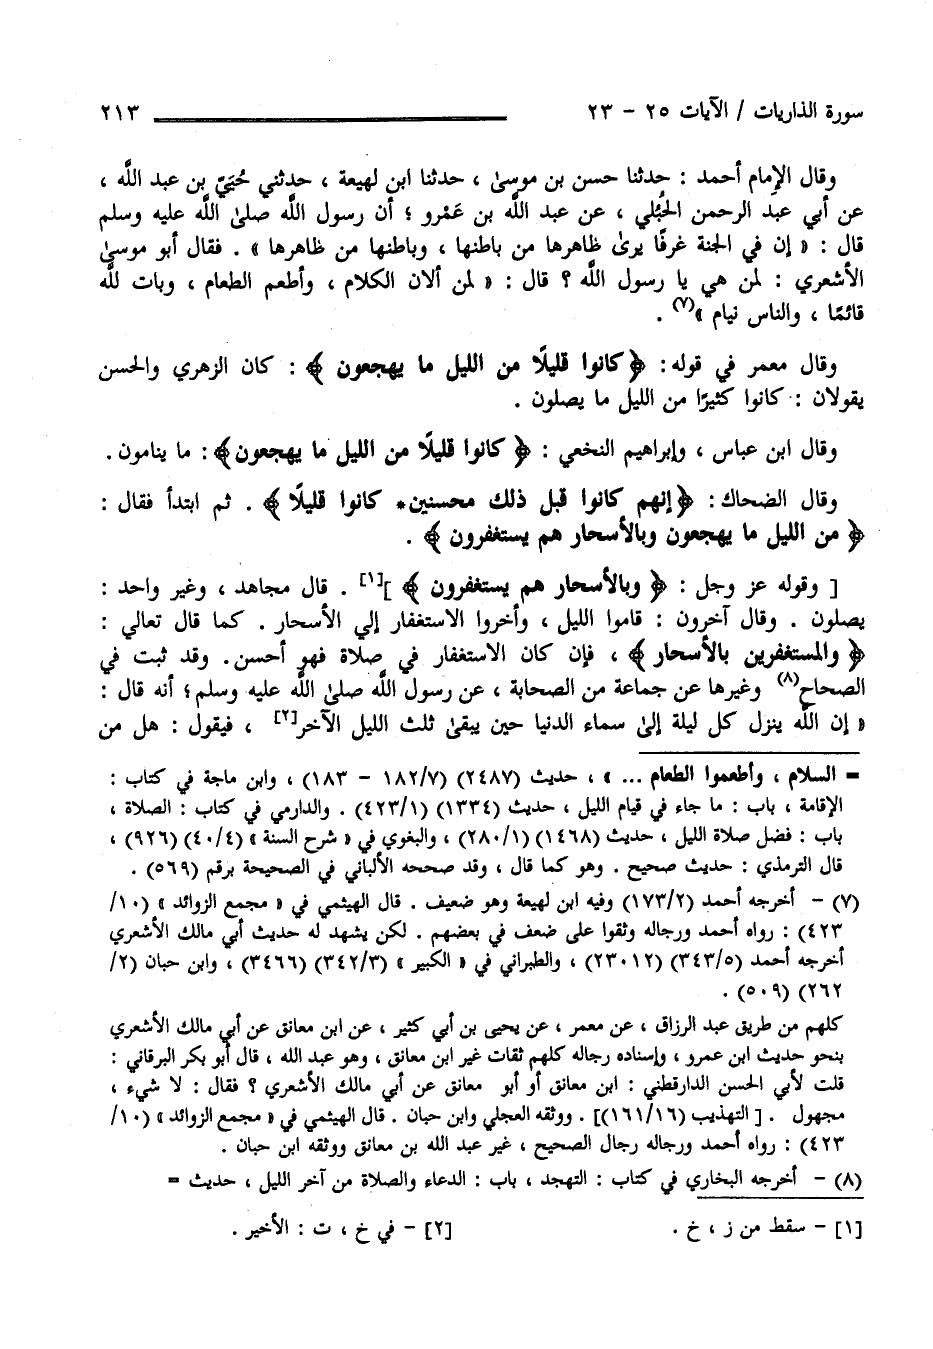 سورة الذاريات / الآيات ٢٥ - ٢٣ ٢١٣
وقال الإمام أحمد : حدثنا حسن بن موسىٰ ، حدثنا ابن لهيعة ، حدثني حُيَيّ بن عبد اللَّه ،
عن أبي عبد الرحمن الحُبُلي ، عن عبد اللَّه بن عَمْرو ؛ أن رسول اللَّه صلىٰ اللَّه عليه وسلم
قال : « إن في الجنة غرفًا يرىٰ ظاهرها من باطنها ، وباطنها من ظاهرها » . فقال أبو موسىٰ
الأشعري : لمن هي يا رسول اللَّه ؟ قال : « لمن ألان الكلام ، وأطعم الطعام ، وبات للَّه
قائمًا ، والناس نيام »(٧) .
وقال معمر في قوله: ﴿كانوا قليلًا من الليل ما يهجعون ﴾ : كان الزهري والحسن
يقولان : كانوا كثيرًا من الليل ما يصلون .
وقال ابن عباس ، وإبراهيم النخعي : ﴿ كانوا قليلًا من الليل ما يهجعون﴾ : ما ينامون .
وقال الضحاك: ﴿إنهم كانوا قبل ذلك محسنين* كانوا قليلًا ﴾ . ثم ابتدأ فقال :
﴿ من الليل ما يهجعون وبالأسحار هم يستغفرون ﴾ .
[ وقوله عز وجل : ﴿ وبالأسحار هم يستغفرون ﴾ ][١] . قال مجاهد ، وغير واحد :
يصلون . وقال آخرون : قاموا الليل ، وأخروا الاستغفار إلي الأسحار . كما قال تعالي :
﴿ والمستغفرين بالأسحار ﴾ ، فإن كان الاستغفار في صلاة فهو أحسن. وقد ثبت في
الصحاح(٨) وغيرها عن جماعة من الصحابة ، عن رسول اللَّه صلىٰ اللَّه عليه وسلم ؛ أنه قال :
« إن اللَّه ينزل كل ليلة إلىٰ سماء الدنيا حين يبقىٰ ثلث الليل الآخر[٢] ، فيقول : هل من
= السلام ، وأطعموا الطعام ... » ، حديث (٢٤٨٧) (١٨٢/٧ - ١٨٣) ، وابن ماجة في كتاب :
الإقامة ، باب : ما جاء في قيام الليل ، حديث (١٣٣٤) (٤٢٣/١) . والدارمي في كتاب : الصلاة ،
باب : فضل صلاة الليل ، حديث (١٤٦٨) (٢٨٠/١) ، والبغوي في « شرح السنة » (٤٠/٤) (٩٢٦) ،
قال الترمذي : حديث صحيح . وهو كما قال ، وقد صححه الألباني في الصحيحة برقم (٥٦٩) .
(٧) - أخرجه أحمد (١٧٣/٢) وفيه ابن لهيعة وهو ضعيف . قال الهيثمي في « مجمع الزوائد » (١٠/
٤٢٣) : رواه أحمد ورجاله وثقوا على ضعف في بعضهم . لكن يشهد له حديث أبي مالك الأشعري
أخرجه أحمد (٣٤٣/٥) (٢٣٠١٢) ، والطبراني في « الكبير » (٣٤٢/٣) (٣٤٦٦) ، وابن حبان (٢/
٢٦٢) (٥٠٩) .
كلهم من طريق عبد الرزاق ، عن معمر ، عن يحيى بن أبي كثير ، عن ابن معانق عن أبي مالك الأشعري
بنحو حديث ابن عمرو ، وإسناده رجاله كلهم ثقات غير ابن معانق ، وهو عبد الله ، قال أبو بكر البرقاني :
قلت لأبي الحسن الدارقطني : ابن معانق أو أبو معانق عن أبي مالك الأشعري ؟ فقال : لا شيء ،
مجهول . [ التهذيب (١٦١/١٦)] . ووثقه العجلي وابن حبان . قال الهيثمي في « مجمع الزوائد » (١٠/
٤٢٣) : رواه أحمد ورجاله رجال الصحيح ، غير عبد الله بن معانق ووثقه ابن حبان .
(٨) - أخرجه البخاري في كتاب : التهجد ، باب : الدعاء والصلاة من آخر الليل ، حديث =
[١] - سقط من ز ، خ . [٢] - في خ ، ت : الأخير .